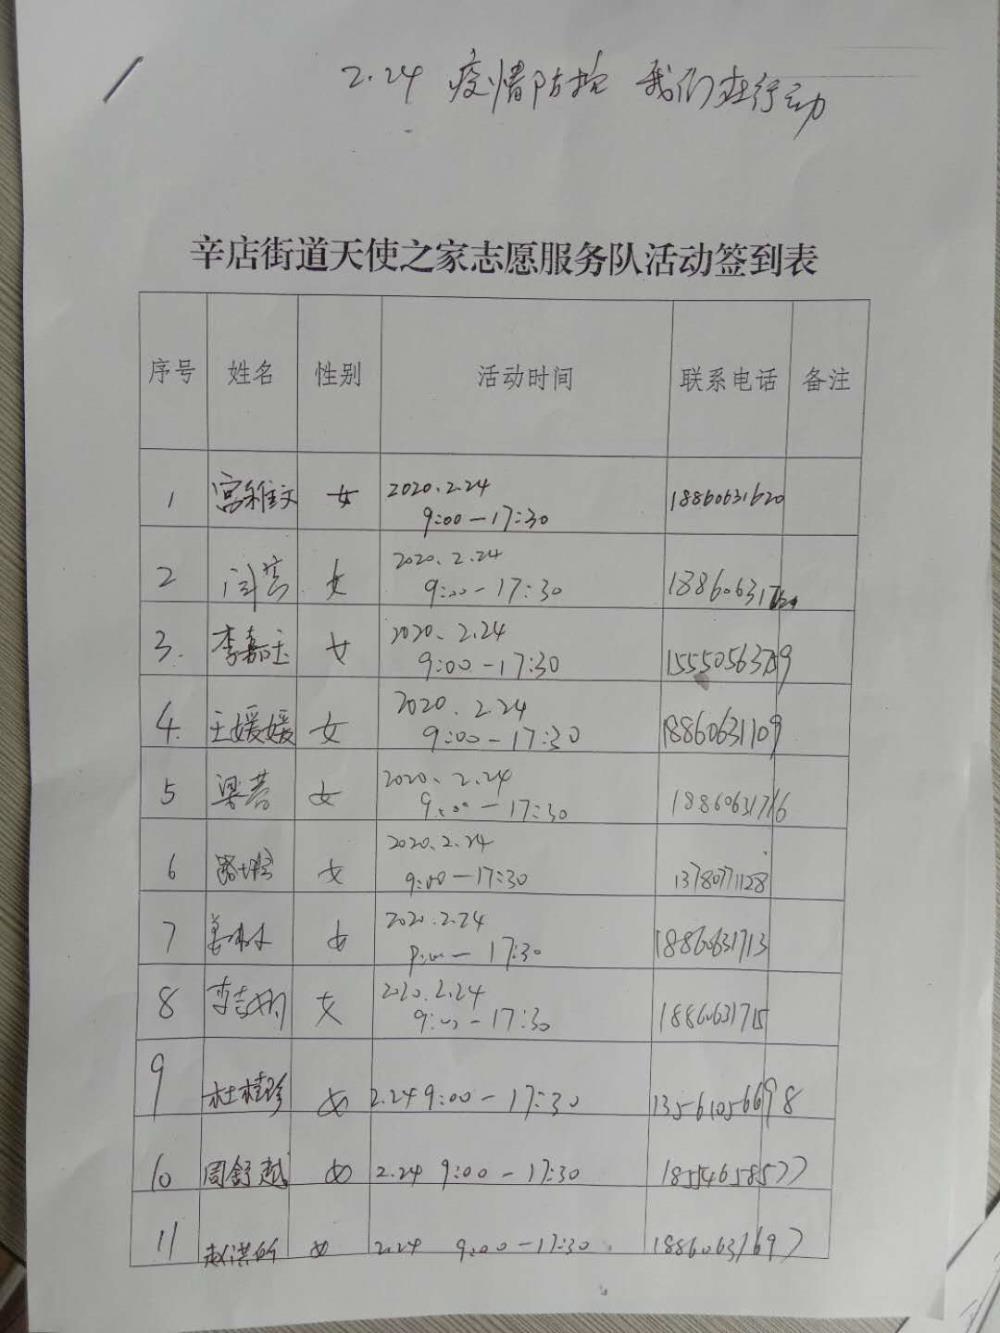 2.24 疫情防控 我们在行动
辛店街道天使之家志愿服务队活动签到表
序号 姓名 性别 活动时间 联系电话 备注
1 宫雅文 女 2020.2.24 18860631620
9:00-17:30
2 闫芸 女 2020.2.24
9:00-17:30
3. 李嘉玉 女 2020.2.24
9:00-17:30
4. 王媛媛 女 2020.2.24 18860631109
9:00-17:30
5 梁芸 女 2020.2.24 18860631716
9:00-17:30
6 女 2020.2.24 13780771128
9:00-17:30
7 姜 女 2020.2.24 18860631713
9:00-17:30
8 李 女 2020.2.24 18860631715
9:00-17:30
9 杜桂珍 女 2.24 9:00-17:30 13561056698
10 周舒越 女 2.24 9:00-17:30 18554658577
11 赵洪 女 2.24 9:00-17:30 18860631697